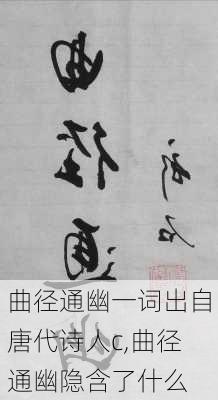 曲径通
曲径通幽一词出自
唐代诗人c,曲径
通幽隐含了什么